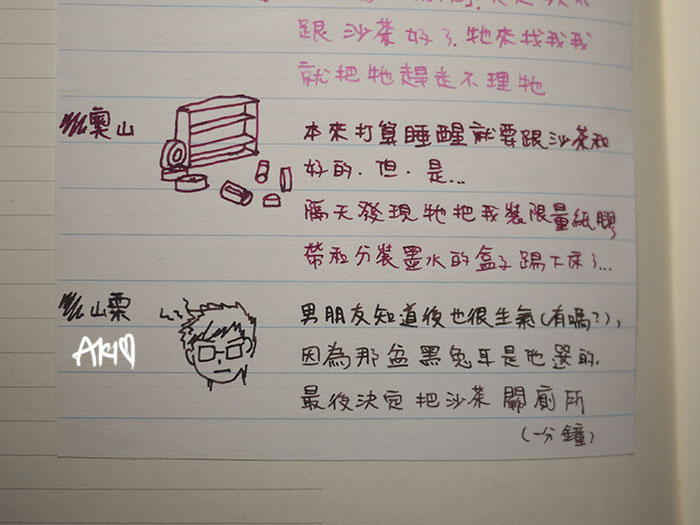 跟沙茶好了.牠來找我我
就把牠趕走不理牠
奧山
本來打算睡醒就要跟沙茶和
好的.但.是...
隔天發現牠把我裝限量紙膠
帶和分裝墨水的盒子踢下床了...
山栗
AKI
男朋友知道後也很生氣(有嗎?),
因為那盆黑兔耳是他選的.
最後決定把沙茶關廁所
(一分鐘)